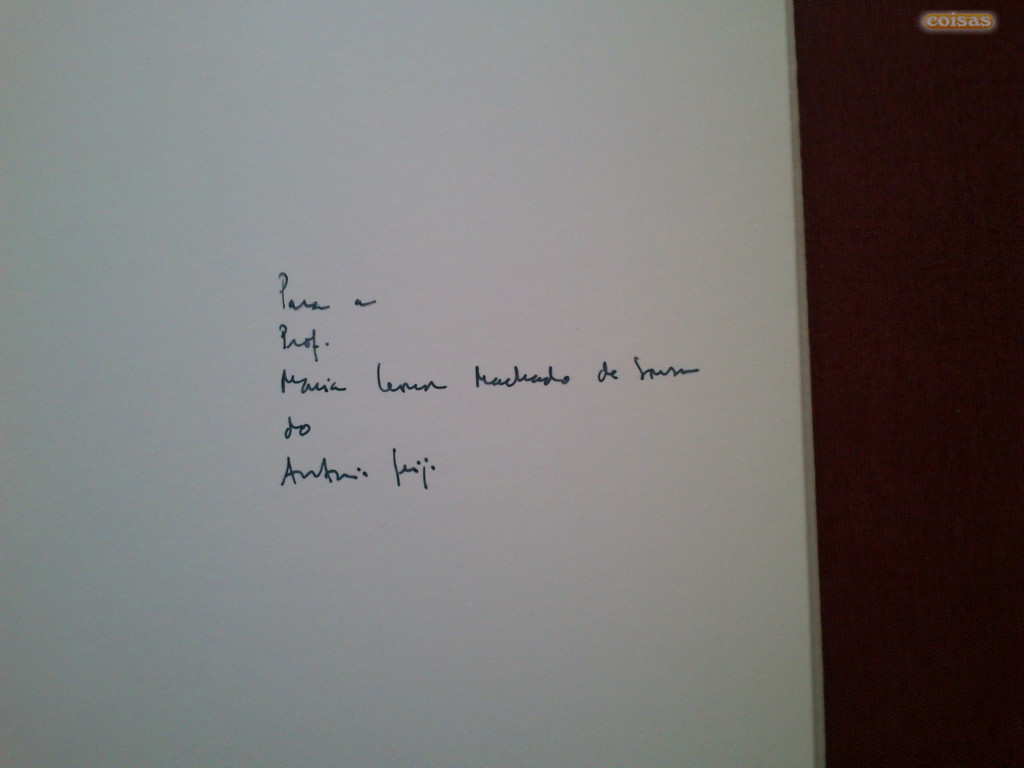 coisas
Para a
Prof.
Maria Leonor Machado de Sousa
do
António Feijó